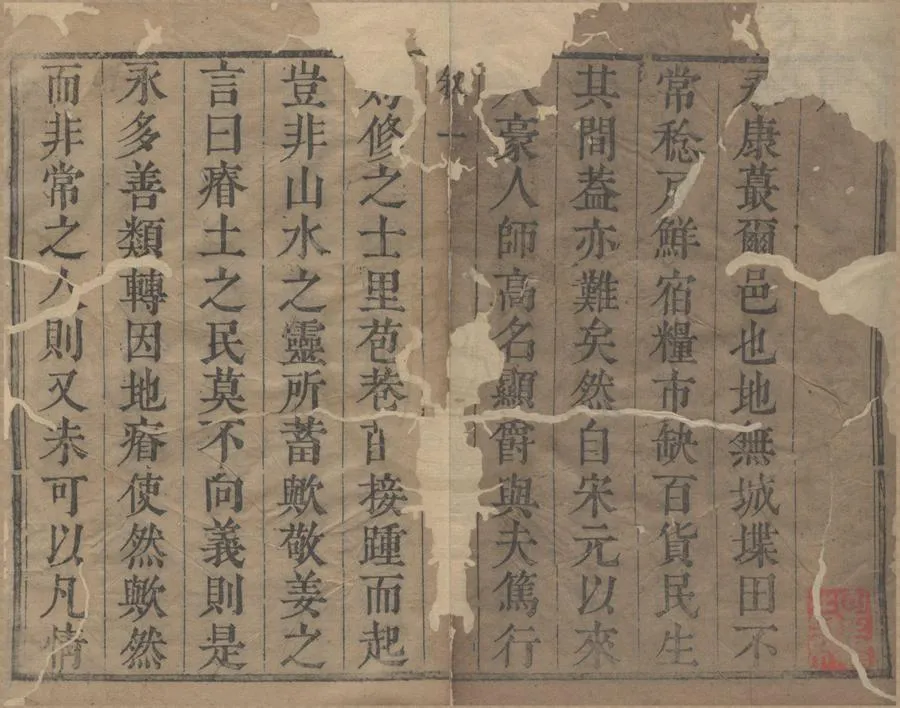 永康蕞爾邑也地無城堞田不
常稔戶鮮宿糧市缺百貨民生
其間葢亦難矣然自宋元以來
豪人師高名顯爵與夫篤行
敘 一
修之士里苞巷接踵而起
豈非山水之靈所蓄歟敬姜之
言曰瘠土之民莫不向義則是
永多善類轉因地瘠使然歟然
而非常之人則又未可以凡情